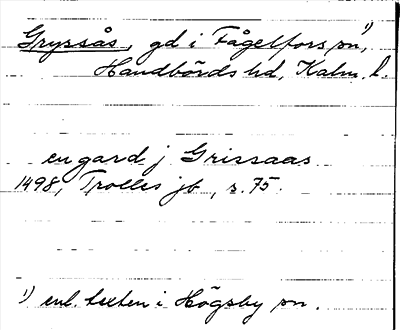 Gryssås, gd i Fågelfors sn¹⁾,
Handbörds hd, Kalm. l.
en gard j Grissaas
1498, Trolles jb, s. 75.
¹⁾ enl. texten i Högsby sn.